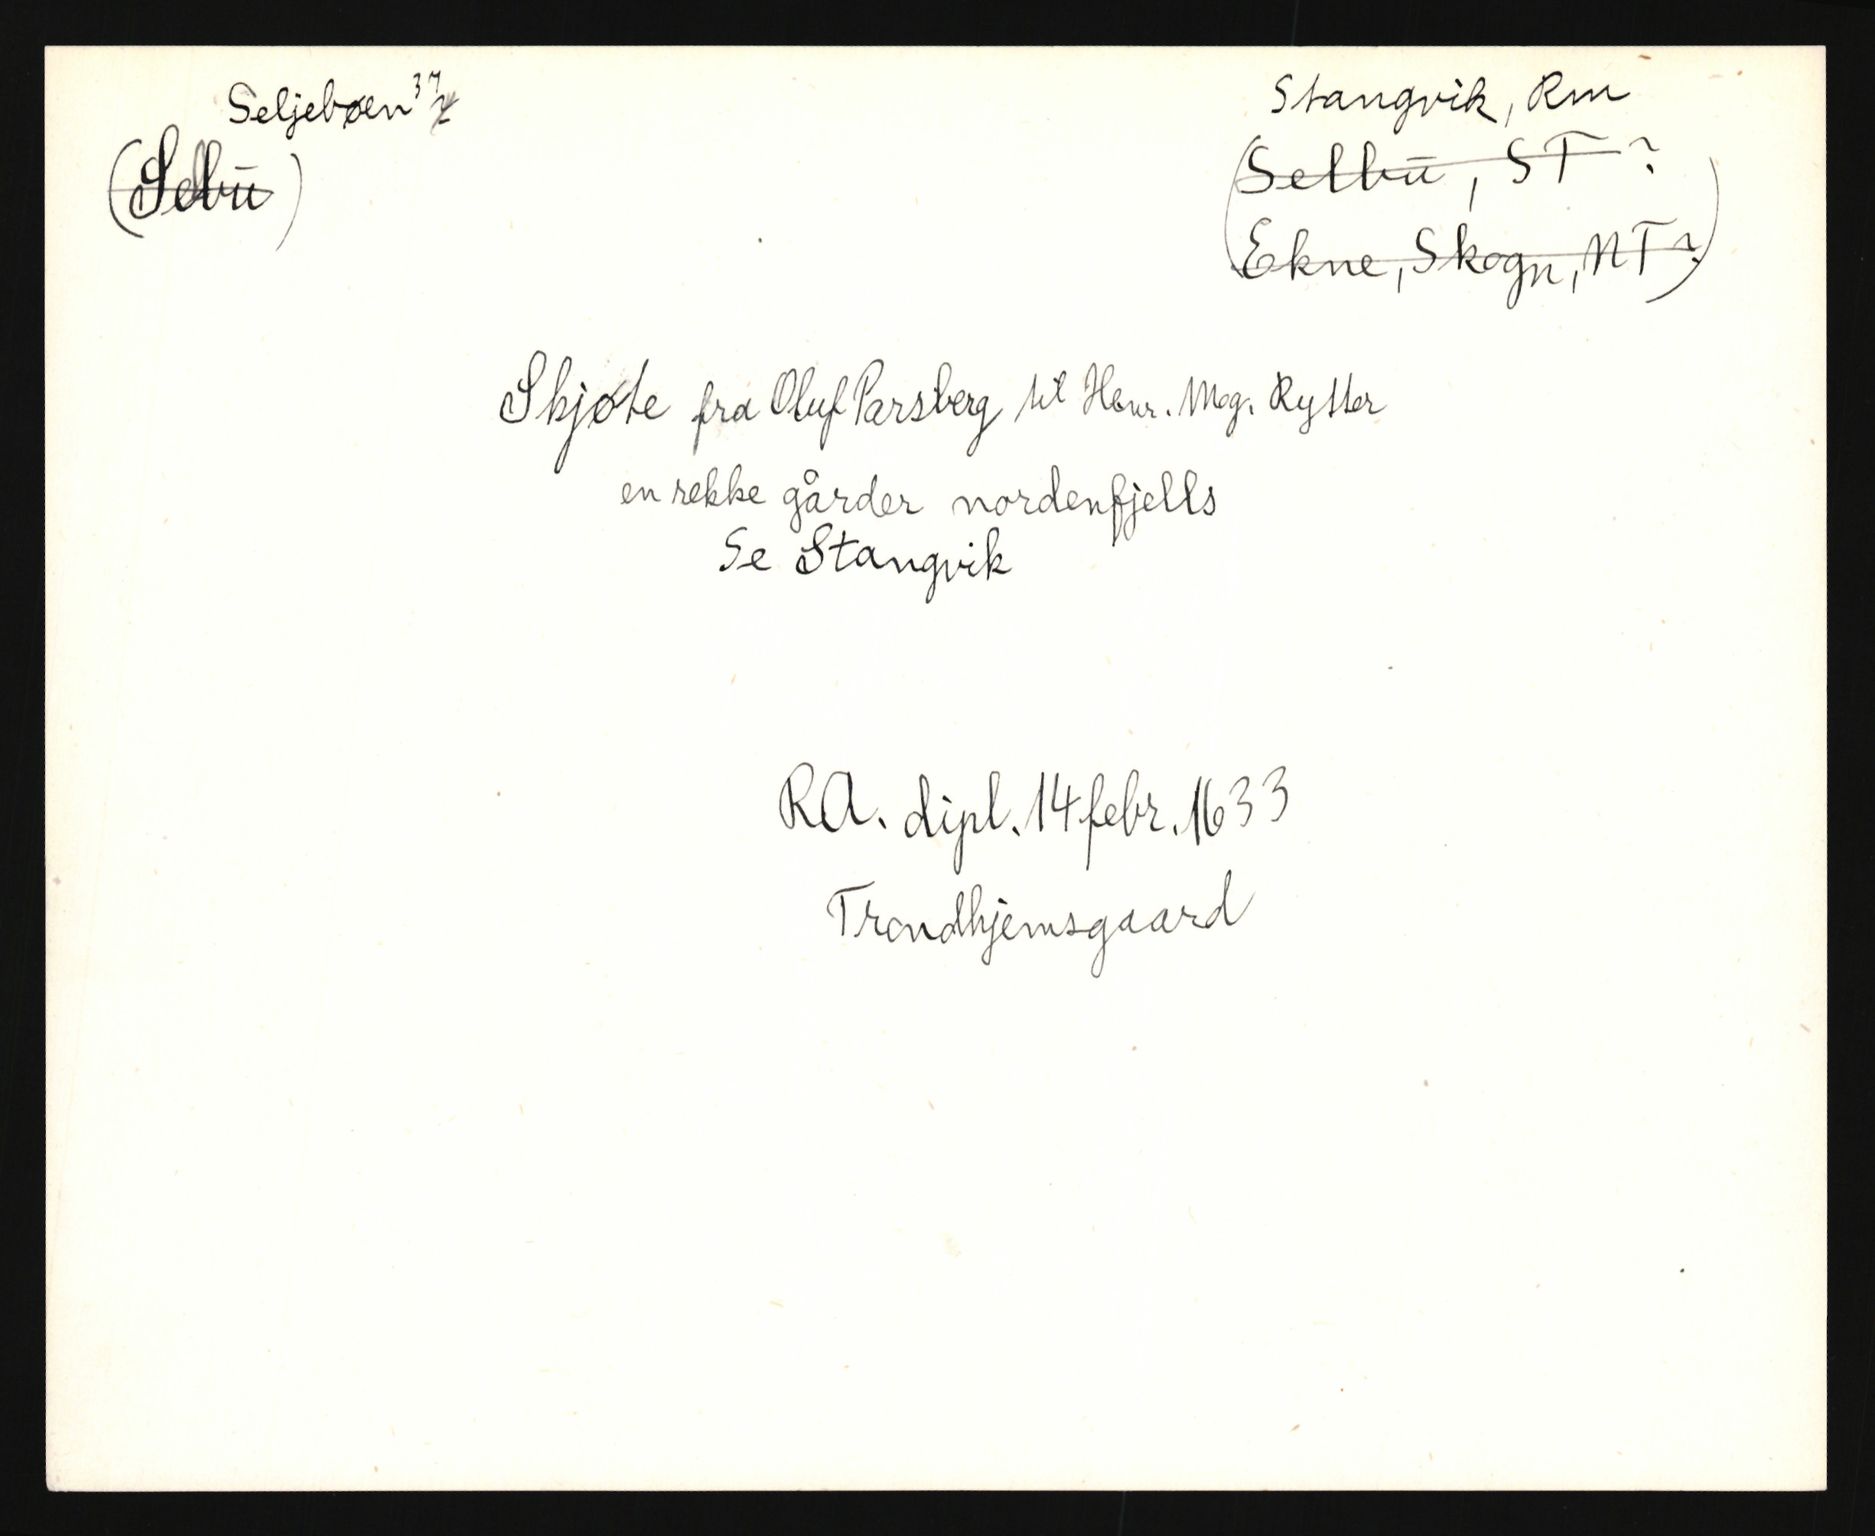 Seljebøen 37
Stangvik, Rm
(Selbū)
(Selbū, ST?
Ekne, Skogn, NT?)
Skjøte fra Oluf Parsberg til Henr. Mog. Rytter
en rekke gårder nordenfjells
Se Stangvik
RA. dipl. 14 febr. 1633
Trondhjemsgaard